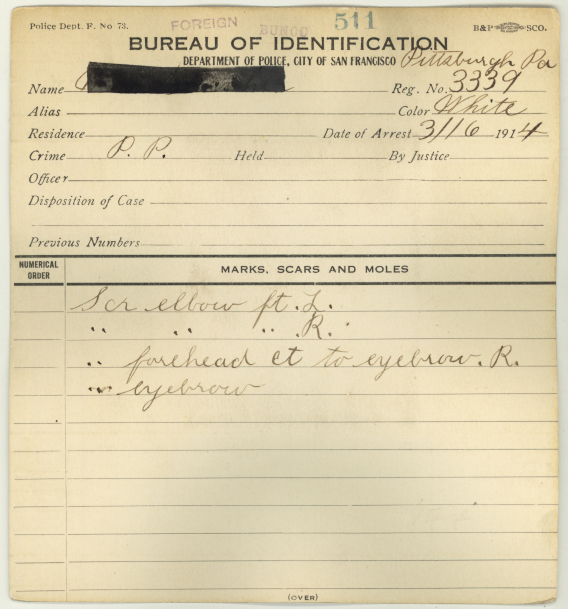 Police Dept. F. No 73.
FOREIGN
BUNCO
511
B&P SCO.
BUREAU OF IDENTIFICATION
DEPARTMENT OF POLICE, CITY OF SAN FRANCISCO Pittsburgh Pa
Name Reg. No. 3339
Alias Color White
Residence Date of Arrest 3/16 1914
Crime P. P. Held By Justice
Officer
Disposition of Case
Previous Numbers
NUMERICAL ORDER MARKS, SCARS AND MOLES
Scr elbow ft. L.
" " " R.
" forehead ct to eyebrow. R.
" eyebrow
(OVER)